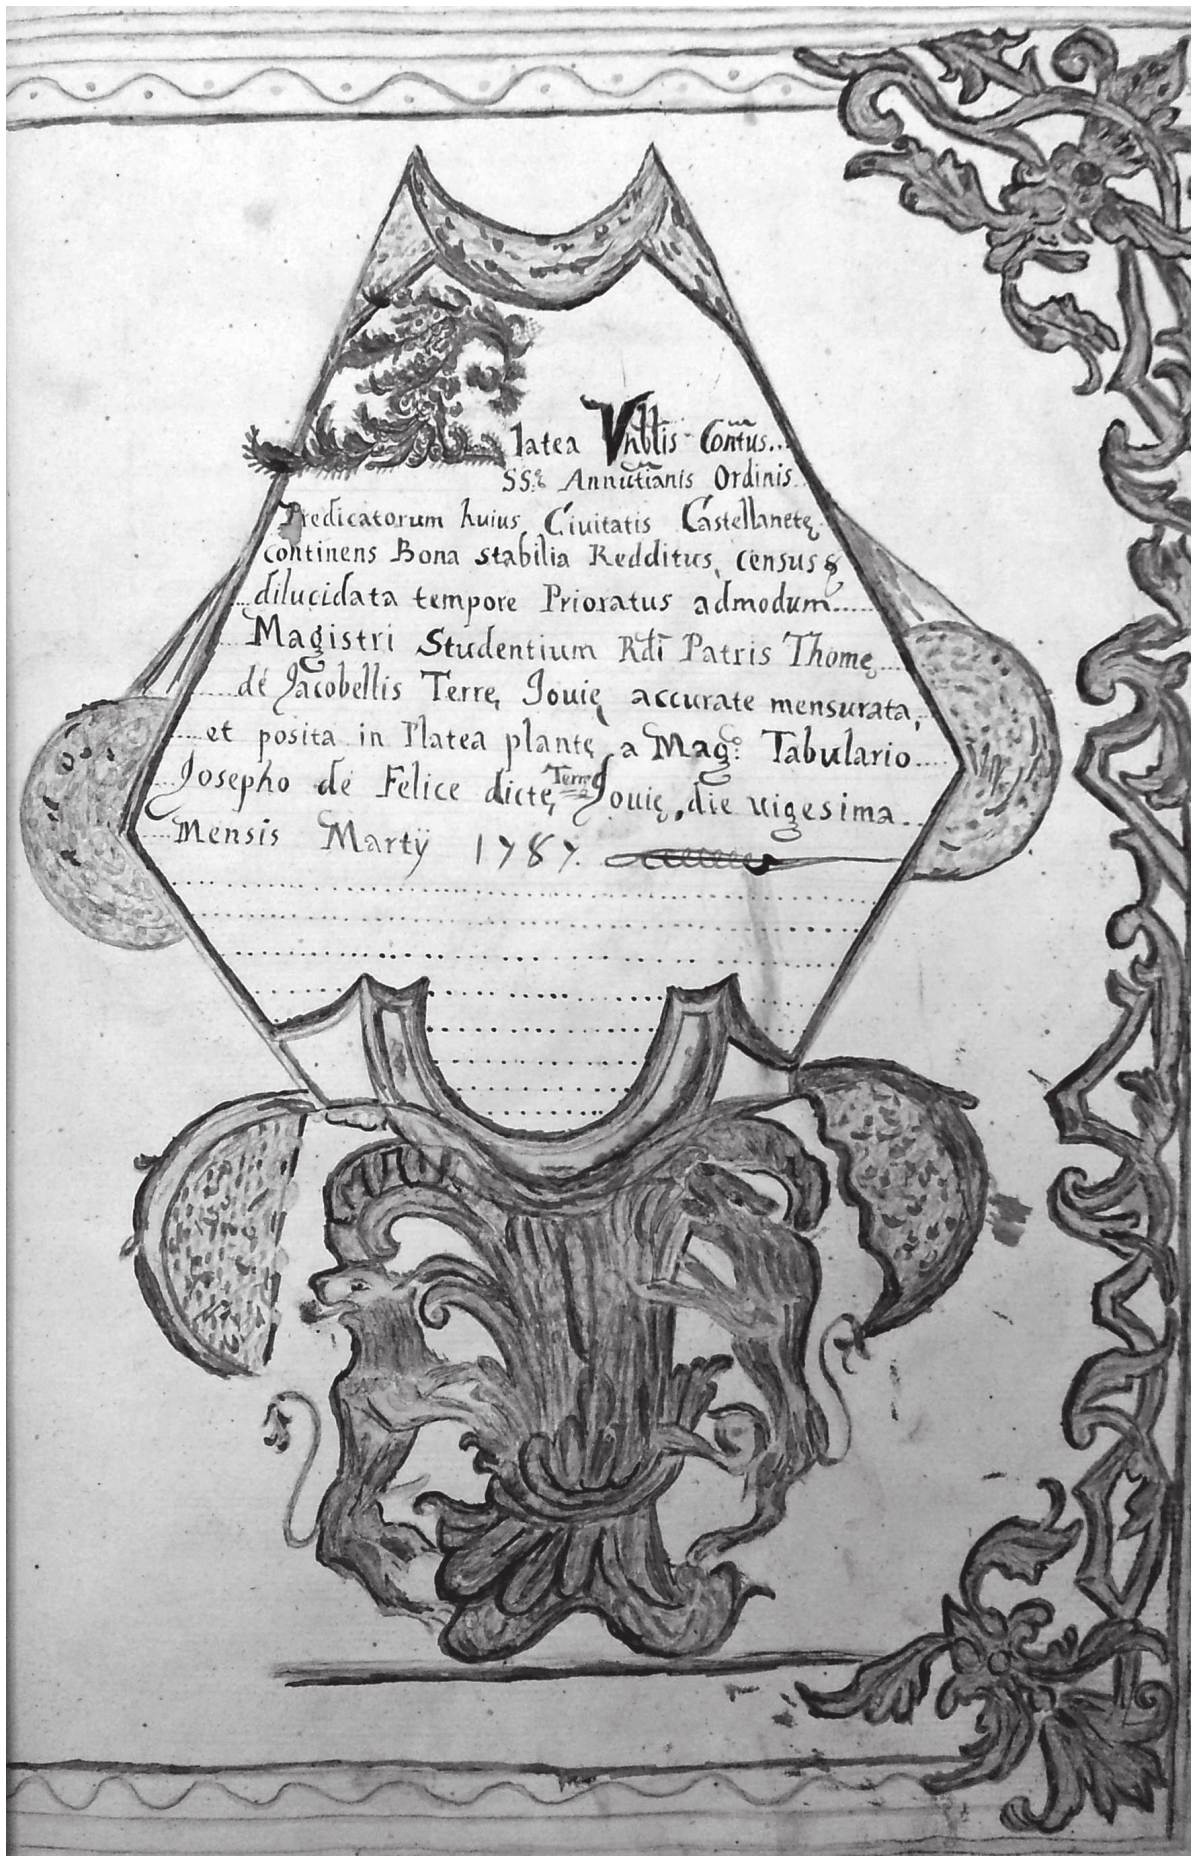 Platea Vnblis Contus...
SS.ę Annūtianis Ordinis
Predicatorum huius Ciuitatis Castellanetę
continens Bona stabilia Redditus, census &
dilucidata tempore Prioratus admodum
Magistri Studentium Rdi Patris Thomę
de Jacobellis Terrę Jouię accurate mensurata,
et posita in Platea plantę a Mag.co Tabulario
Josepho de Felice dictę Terrę Jouię, die uigesima
Mensis Martÿ 1787.